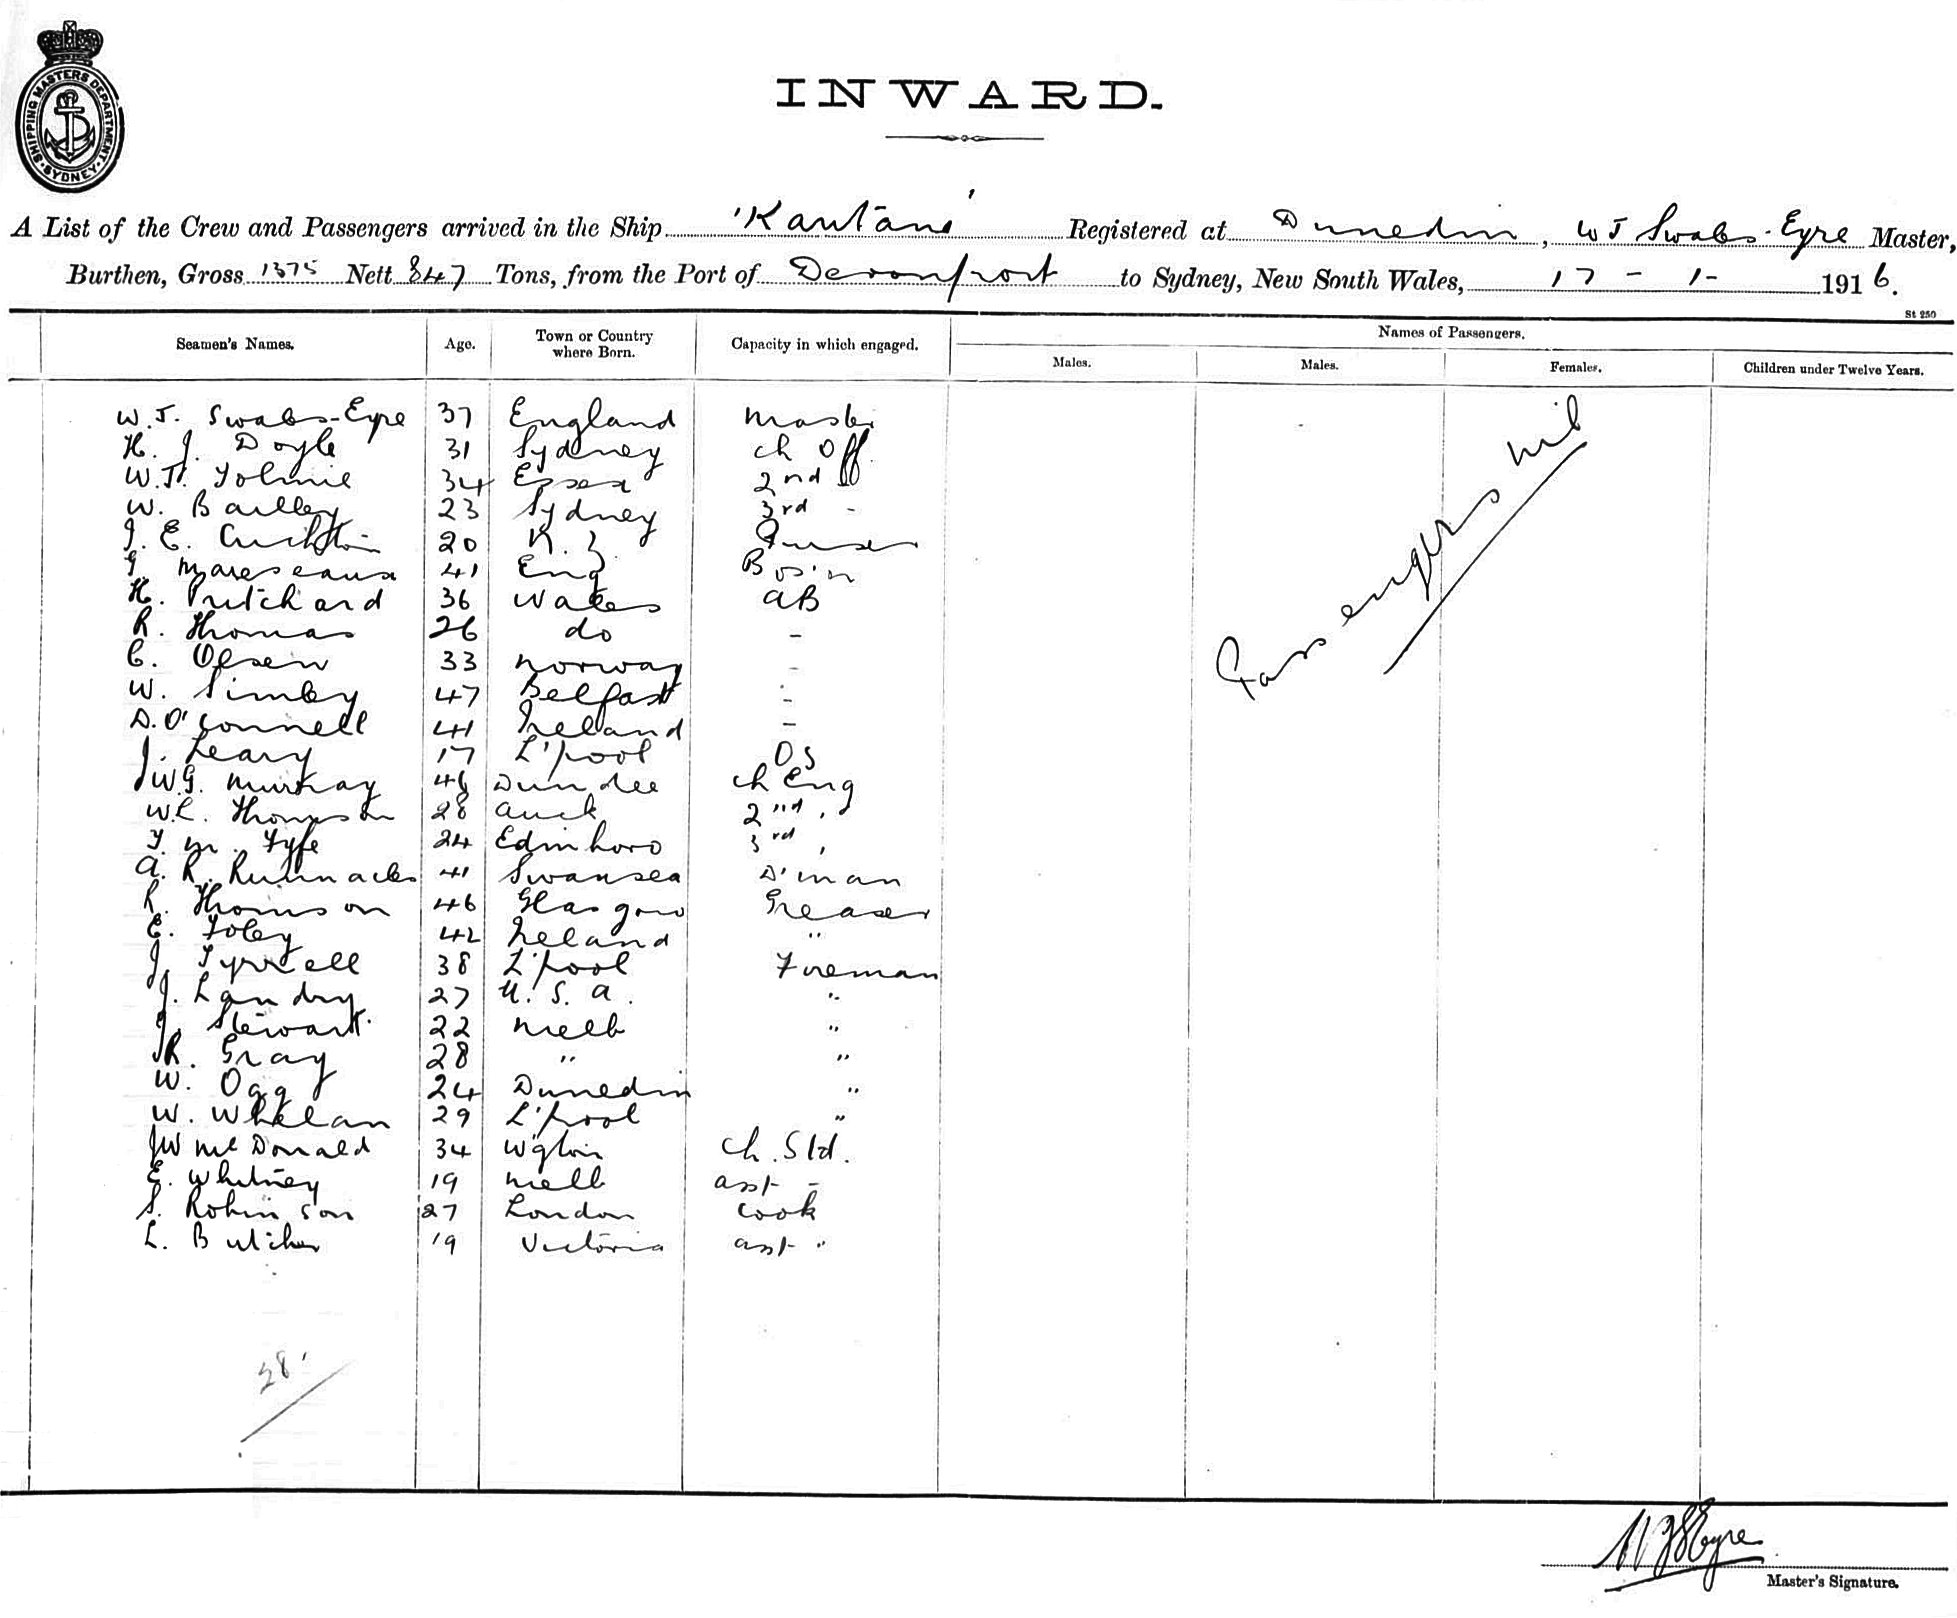 SHIPPING MASTERS DEPARTMENT
SYDNEY
INWARD.
A List of the Crew and Passengers arrived in the Ship 'Kaitana' Registered at Dunedin, W J Swabs-Eyre Master,
Burthen, Gross 1375 Nett 847 Tons, from the Port of Devonport to Sydney, New South Wales, 17 - 1 - 1916.
St 250
Seamen's Names. Age. Town or Country where Born. Capacity in which engaged. Names of Passengers.
Males. Males. Females. Children under Twelve Years.
W. J. Swabs-Eyre 37 England Master
H. J. Doyle 31 Sydney Ch Off.
W. J. Tolmie 34 Essex 2nd
W. Bailley 23 Sydney 3rd -
J. E. 20 N. Z. Purser
G. Mareseaux 41 Eng Bos'n
H. Pritchard 36 Wales AB
R. Thomas 26 do -
C. Olsen 33 Norway -
W. Simley 47 Belfast -
D. O'Connell 41 Ireland -
J. Leary 17 L'pool OS
W. G. Murray 46 Dundee Ch Eng
W. C. Thomson 28 Auck 2nd "
T. M. Fyfe 24 Edinboro 3rd "
A. R. 41 Swansea D'man
R. Thomson 46 Glasgow Greaser
E. Foley 42 Ireland "
J. Tyrrell 38 L'pool Fireman
J. Landry 27 U.S.A. "
J. Stewart 22 Melb "
R. Gray 28 " "
W. Ogg 24 Dunedin "
W. Whelan 29 L'pool "
J W McDonald 34 W'gton Ch. Std.
E. Whitney 19 Melb asst -
S. Robinson 27 London Cook
L. Butcher 19 Victoria asst "
Passengers nil
28
W J S Eyre
Master's Signature.